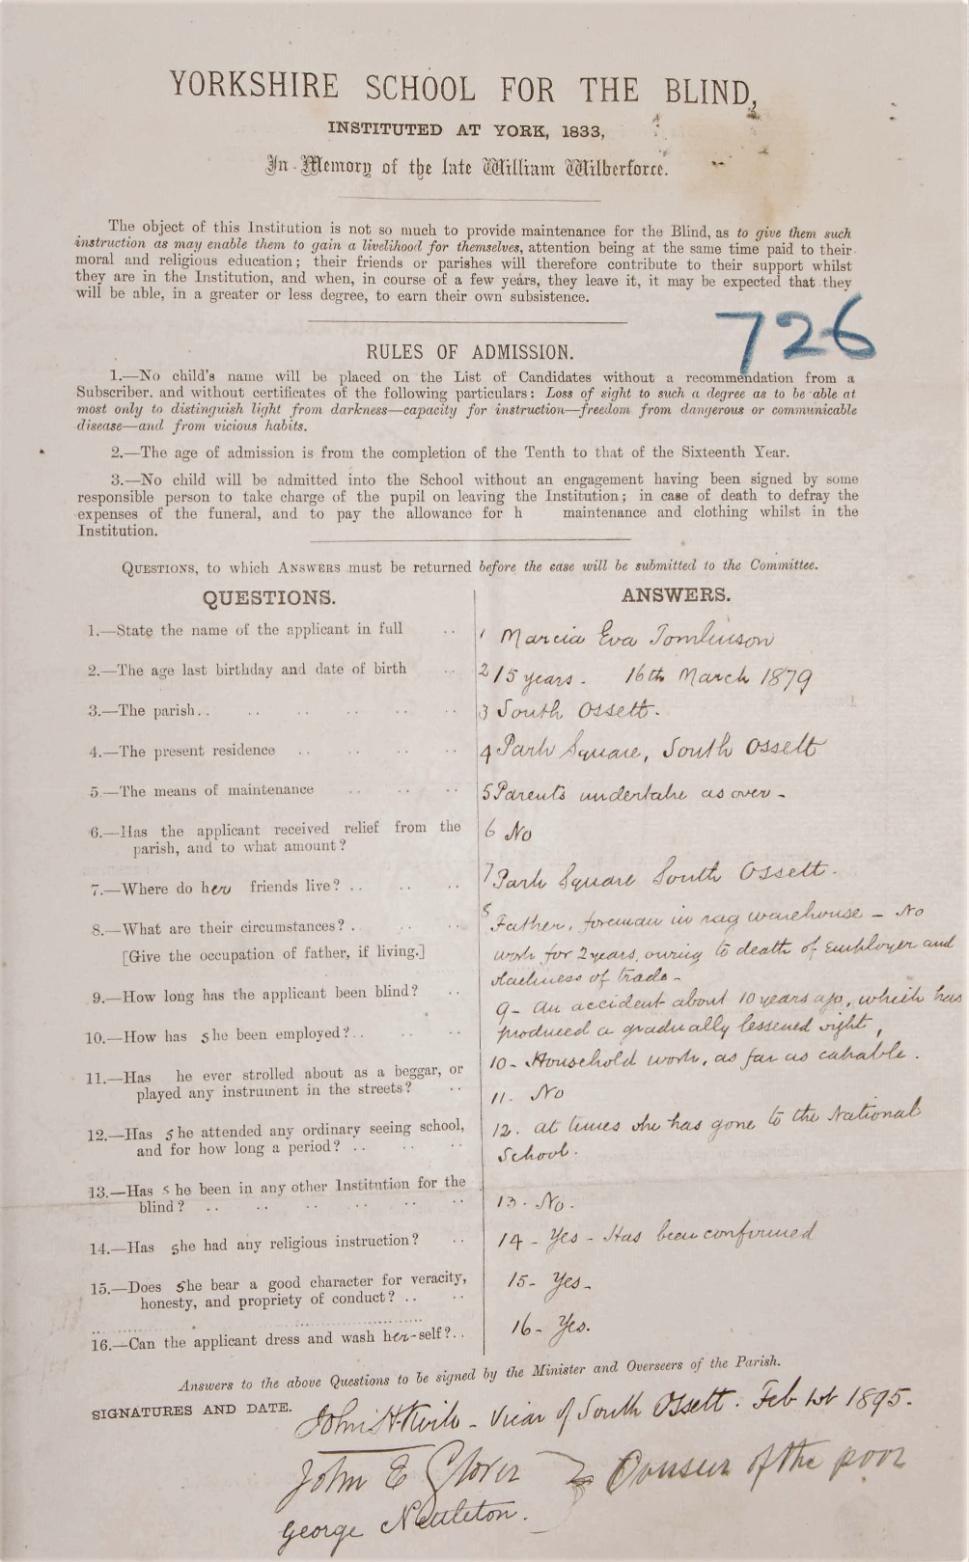 YORKSHIRE SCHOOL FOR THE BLIND,
INSTITUTED AT YORK, 1833,
In Memory of the late William Wilberforce.
The object of this Institution is not so much to provide maintenance for the Blind, as to give them such
instruction as may enable them to gain a livelihood for themselves, attention being at the same time paid to their
moral and religious education; their friends or parishes will therefore contribute to their support whilst
they are in the Institution, and when, in course of a few years, they leave it, it may be expected that they
will be able, in a greater or less degree, to earn their own subsistence.
726
RULES OF ADMISSION.
1.—No child's name will be placed on the List of Candidates without a recommendation from a
Subscriber. and without certificates of the following particulars: Loss of sight to such a degree as to be able at
most only to distinguish light from darkness—capacity for instruction—freedom from dangerous or communicable
disease—and from vicious habits.
2.—The age of admission is from the completion of the Tenth to that of the Sixteenth Year.
3.—No child will be admitted into the School without an engagement having been signed by some
responsible person to take charge of the pupil on leaving the Institution; in case of death to defray the
expenses of the funeral, and to pay the allowance for h maintenance and clothing whilst in the
Institution.
QUESTIONS, to which ANSWERS must be returned before the case will be submitted to the Committee.
QUESTIONS. ANSWERS.
1.—State the name of the applicant in full .. 1 Marcia Eva Tomlinson
2.—The age last birthday and date of birth .. 2 15 years. 16th March 1879
3.—The parish .. .. .. .. .. .. 3 South Ossett.
4.—The present residence .. .. .. .. 4 Park Square, South Ossett
5.—The means of maintenance .. .. .. 5 Parents undertake as over -
6.—Has the applicant received relief from the 6 No
parish, and to what amount?
7.—Where do her friends live? .. .. .. 7 Park Square South Ossett.
8.—What are their circumstances? .. .. .. 8 Father, foreman in rag warehouse - No
[Give the occupation of father, if living.] work for 2 years, owing to death of Employer and
slackness of trade -
9.—How long has the applicant been blind? .. 9 - An accident about 10 years ago, which has
produced a gradually lessened sight,
10.—How has she been employed? .. .. .. 10 - Household work, as far as capable.
11.—Has he ever strolled about as a beggar, or 11. No
played any instrument in the streets? ..
12.—Has she attended any ordinary seeing school, 12. at times she has gone to the National
and for how long a period? .. .. .. School.
13.—Has she been in any other Institution for the 13 - No.
blind? .. .. .. .. .. ..
14.—Has she had any religious instruction? .. 14 - Yes - Has been confirmed
15.—Does she bear a good character for veracity, 15 - Yes -
honesty, and propriety of conduct? .. ..
16.—Can the applicant dress and wash her-self? .. 16 - Yes.
Answers to the above Questions to be signed by the Minister and Overseers of the Parish.
SIGNATURES AND DATE. John H - Vicar of South Ossett. Feb 1st 1895.
John E Glover Overseer of the poor
George Nettleton.